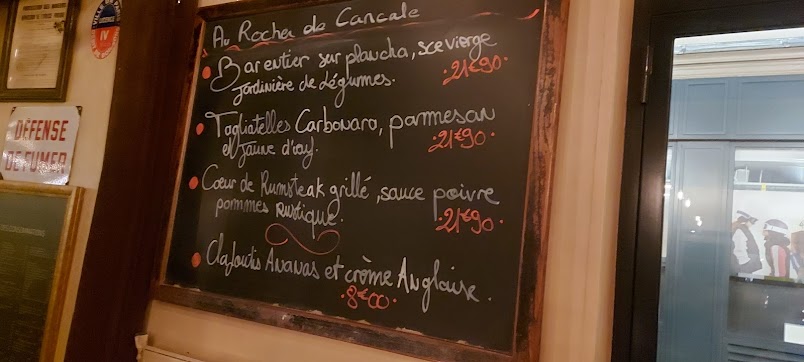 Au Rocher de Cancale
Barentier sur plancha, sce vierge
jardinière de légumes.
21€90
Tagliatelles Carbonara, parmesan
et jaune d'œuf.
21€90
Coeur de Rumsteak grillé, sauce poivre
pommes rustique.
21€90
Clafoutis Ananas et crème Anglaise.
8€00
DÉFENSE
DE FUMER
IV